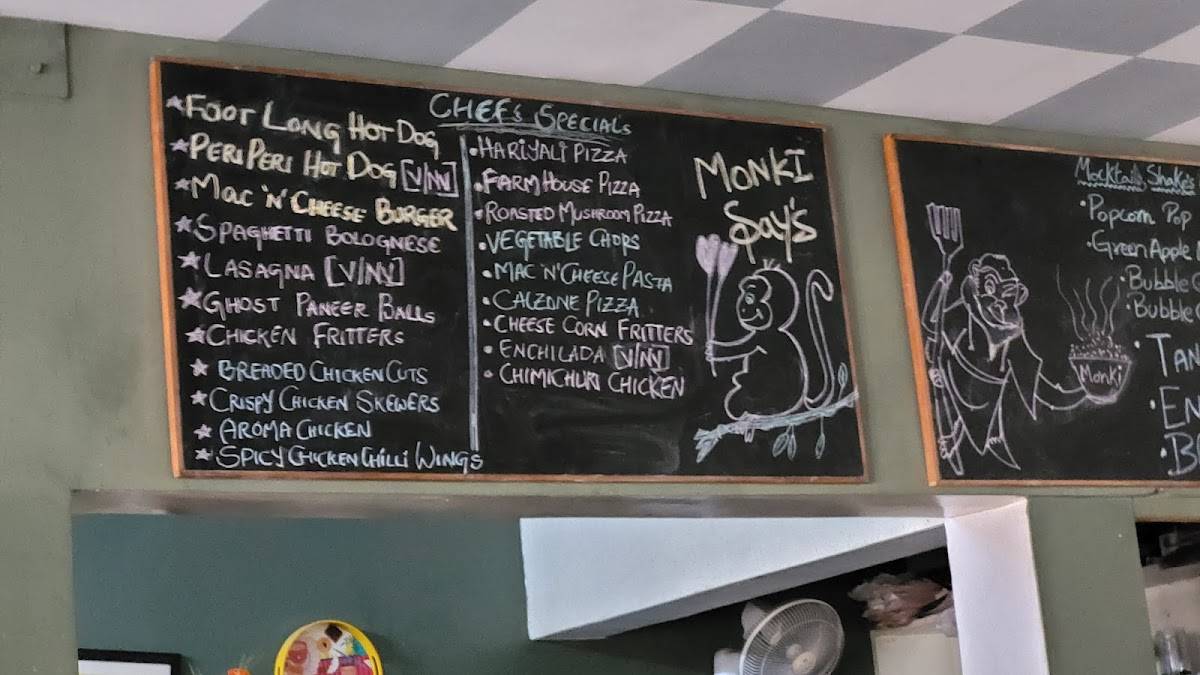 CHEF's SPECIAL's
★ FOOT LONG HOT DOG
★ PERI PERI HOT DOG [V/NV]
★ MAC 'N' CHEESE BURGER
★ SPAGHETTI BOLOGNESE
★ LASAGNA [V/NV]
★ GHOST PANEER BALLS
★ CHICKEN FRITTERS
★ BREADED CHICKEN CUTS
★ CRISPY CHICKEN SKEWERS
★ AROMA CHICKEN
★ SPICY CHICKEN CHILLI WINGS
• HARIYALI PIZZA
• FARM HOUSE PIZZA
• ROASTED MUSHROOM PIZZA
• VEGETABLE CHOPS
• MAC 'N' CHEESE PASTA
• CALZONE PIZZA
• CHEESE CORN FRITTERS
• ENCHILADA [V/NV]
• CHIMICHURI CHICKEN
MONKI
Say's
Mocktails Shakes
• Popcorn Pop
• Green Apple
• Bubble
• Bubble
Monki